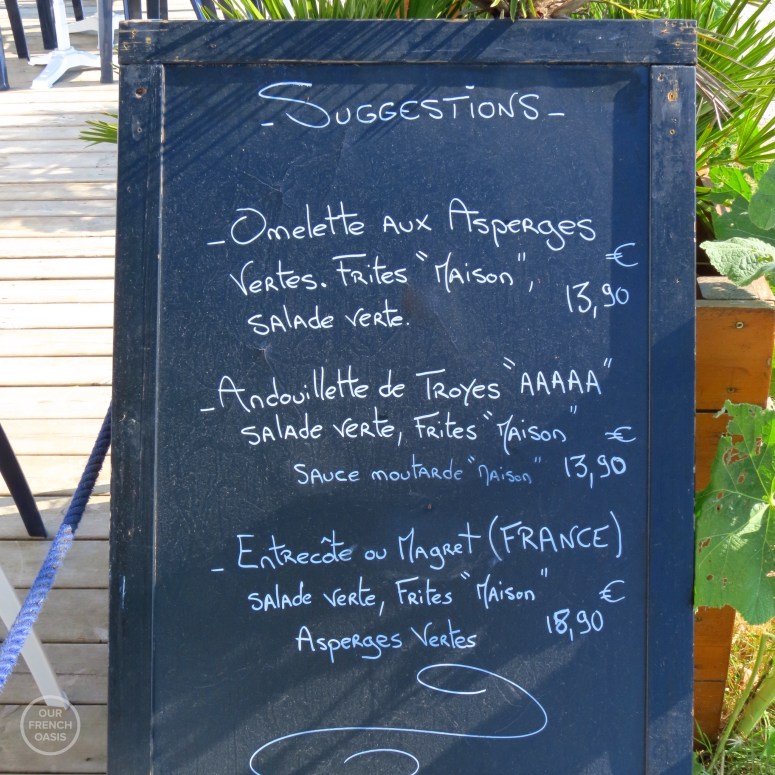 - Suggestions -
- Omelette aux Asperges
Vertes. Frites "Maison", €
salade verte. 13,90
- Andouillette de Troyes "AAAAA"
salade verte, Frites "Maison" €
sauce moutarde "Maison" 13,90
- Entrecôte ou Magret (FRANCE)
salade verte, Frites "Maison" €
Asperges Vertes 18,90
OUR
FRENCH
OASIS